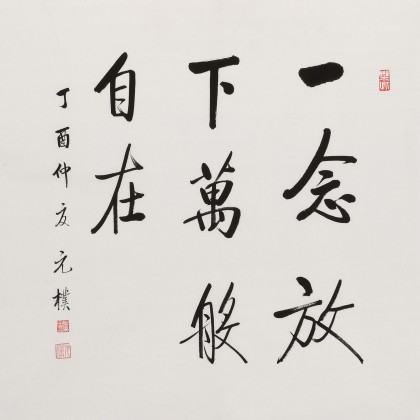 一念放
下萬般
自在
丁酉仲夏元樸